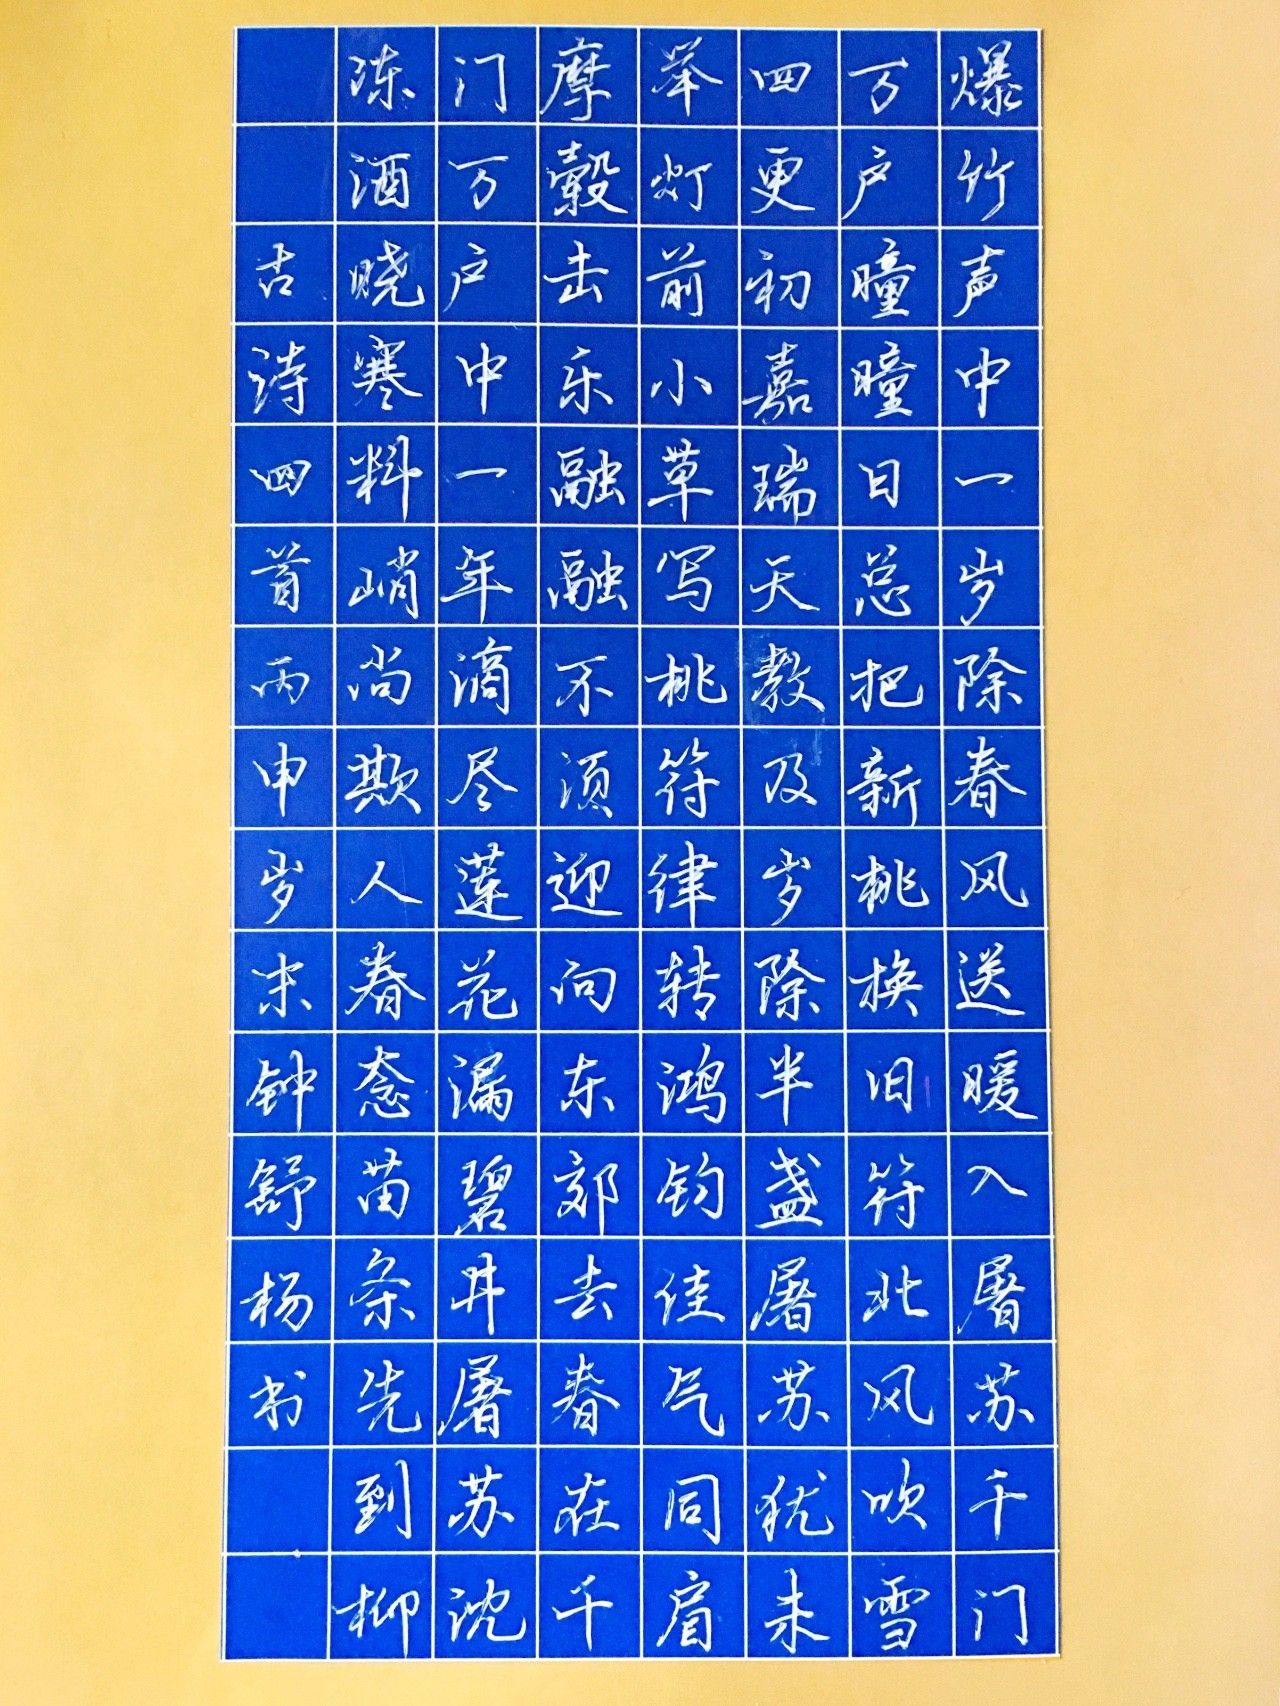 爆竹声中一岁除春风送暖入屠苏千门
万户曈曈日总把新桃换旧符北风吹雪
四更初嘉瑞天教及岁除半盏屠苏犹未
举灯前小草写桃符律转鸿钧佳气同肩
摩毂击乐融融不须迎向东郊去春在千
门万户中一年滴尽莲花漏碧井屠苏沈
冻酒晓寒料峭尚欺人春态苗条先到柳
古诗四首丙申岁末钟舒杨书